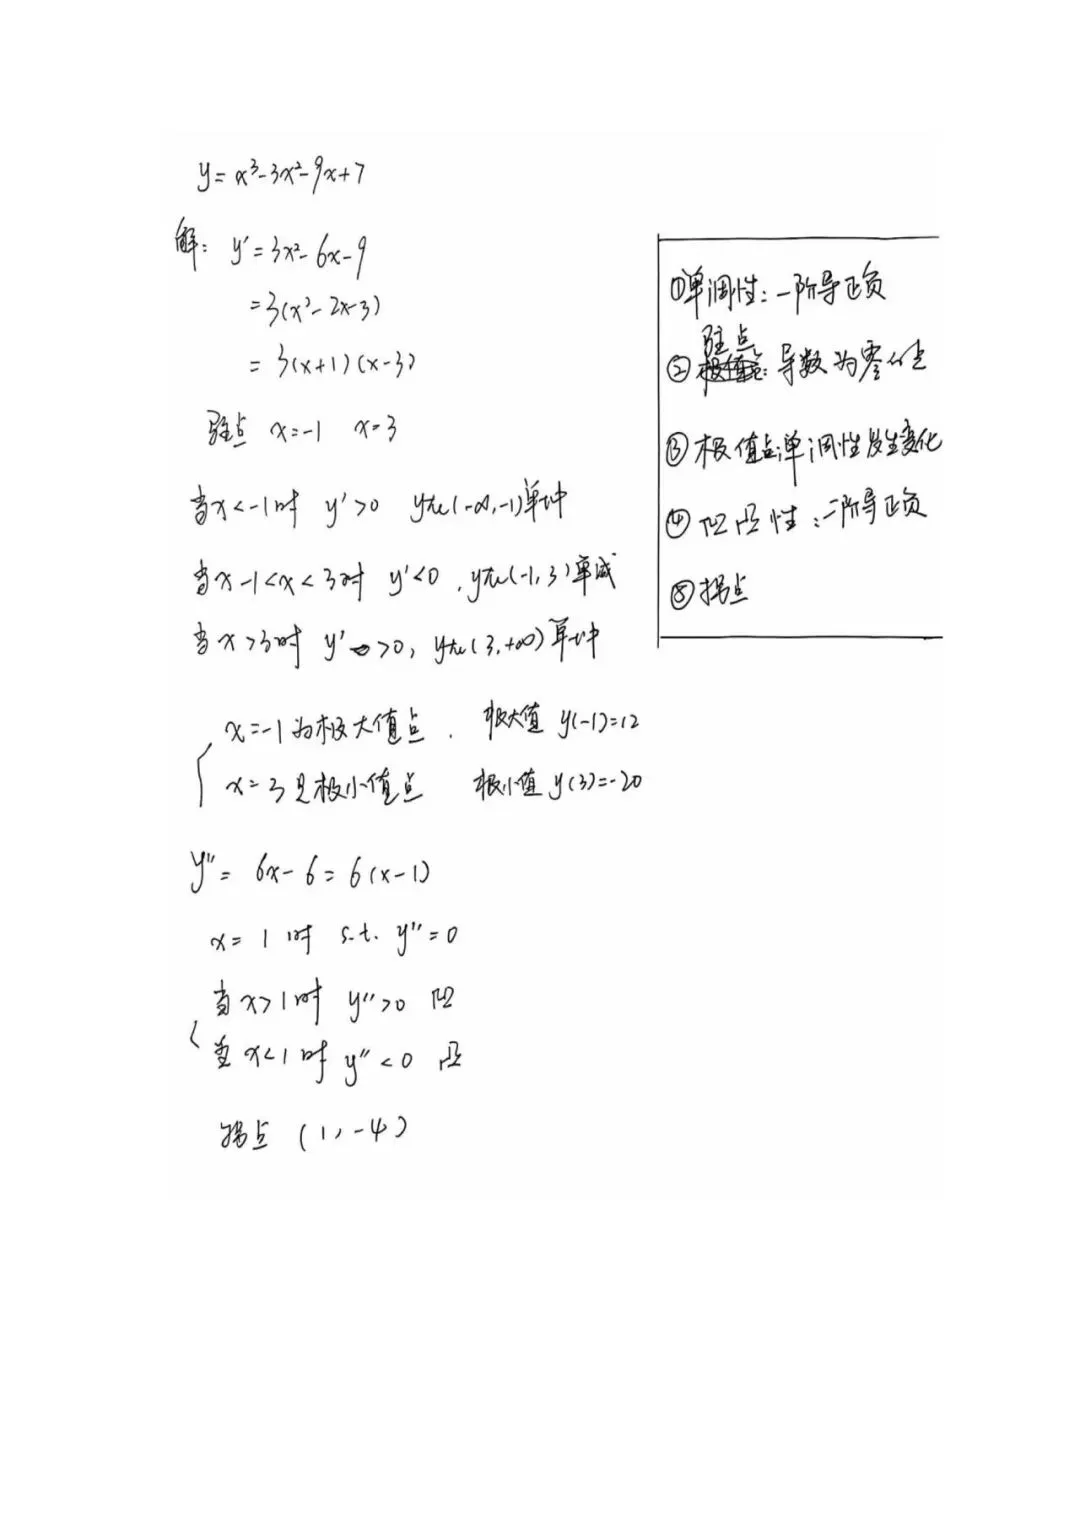 y = x³-3x²-9x+7
解: y′ = 3x²-6x-9
= 3(x²-2x-3)
= 3(x+1)(x-3)
驻点 x=-1 x=3
当x<-1时 y′>0 y在(-∞,-1)单增
当x -1<x<3时 y′<0, y在(-1,3)单减
当x>3时 y′>0, y在(3,+∞)单增
x=-1为极大值点. 极大值 y(-1)=12
x=3是极小值点 极小值 y(3)=-20
y″ = 6x-6 = 6(x-1)
x=1时 s.t. y″=0
当x>1时 y″>0 凹
当x<1时 y″<0 凸
拐点 (1,-4)
①单调性:一阶导正负
②驻点:导数为零的点
③极值点单调性发生变化
④凹凸性:二阶导正负
⑤拐点